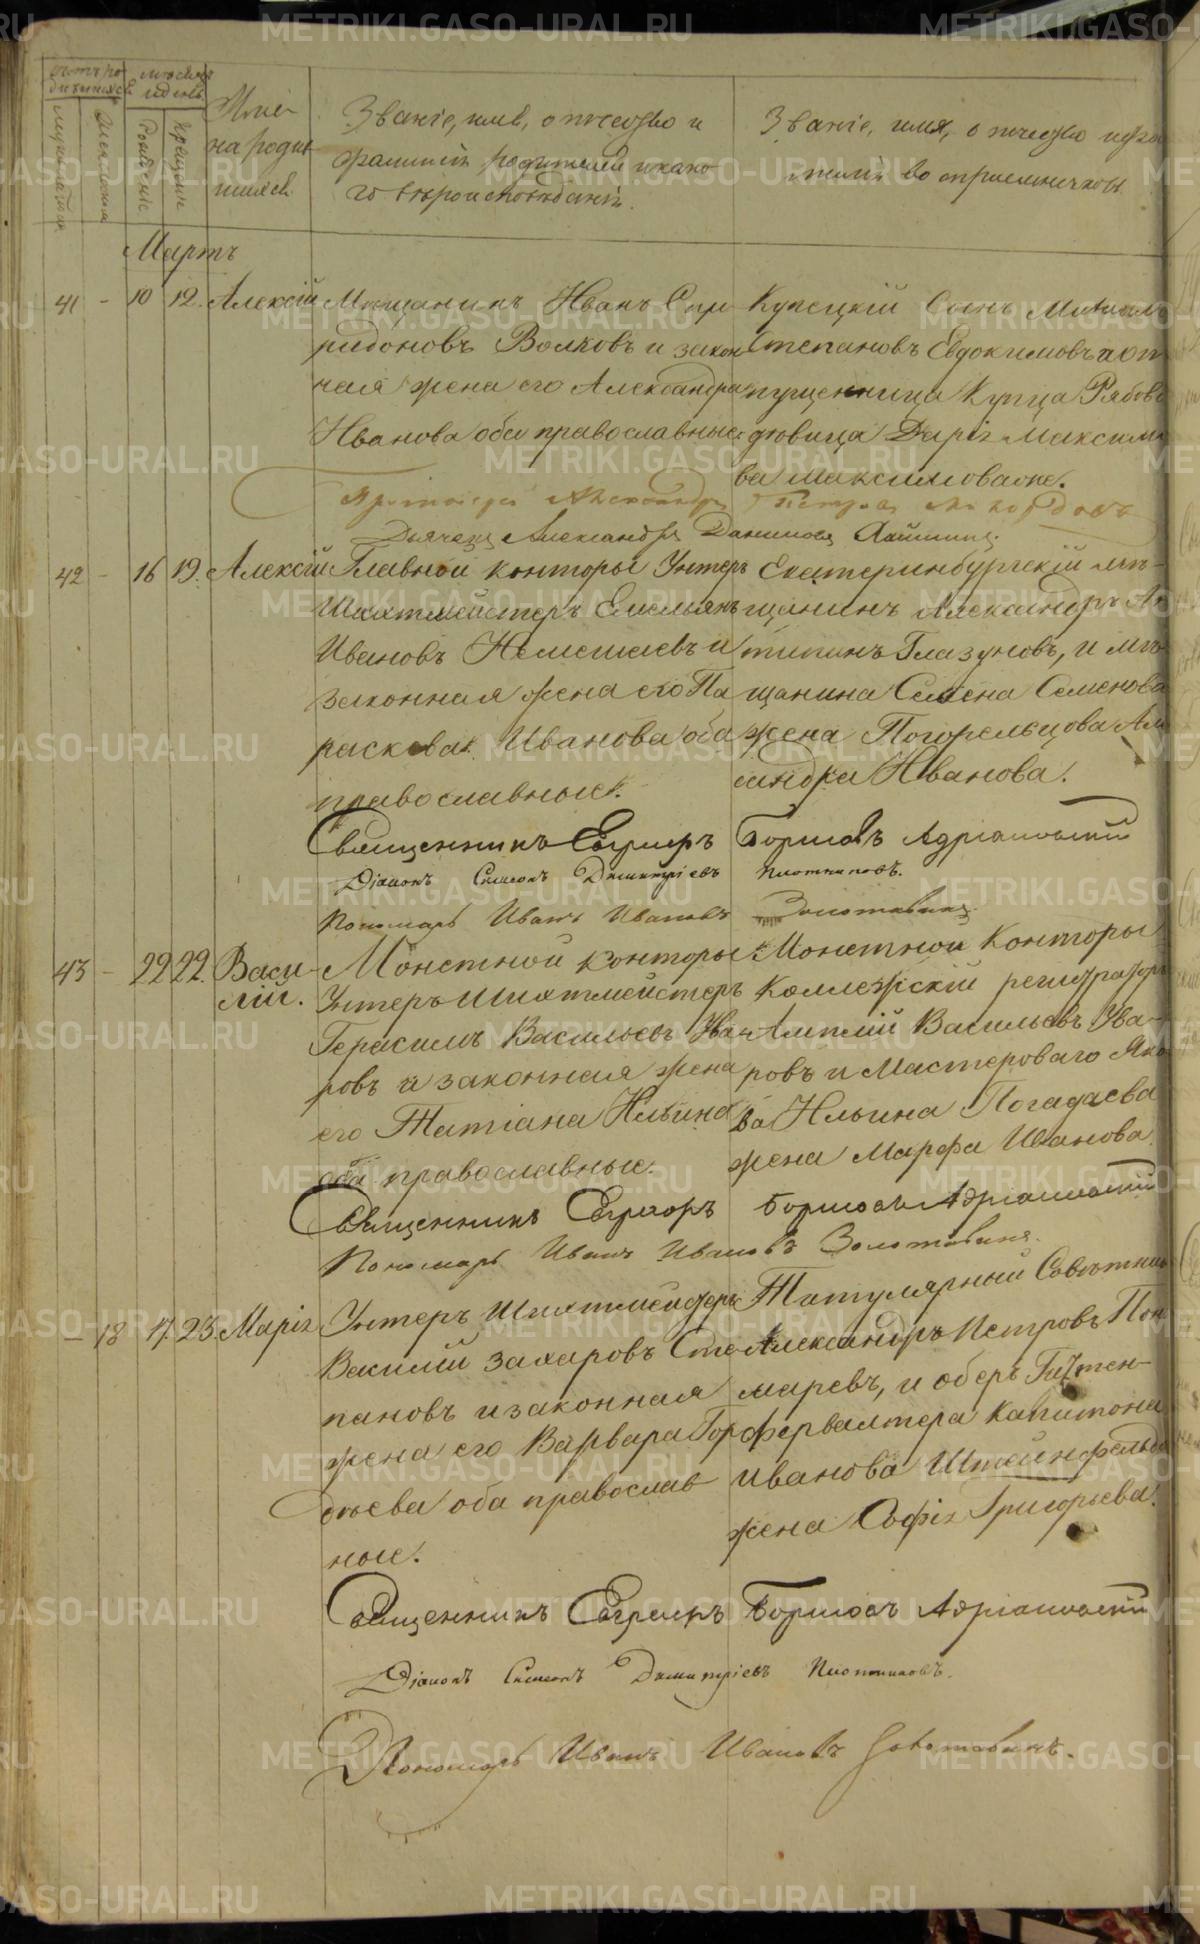 Счетъ ро-
дившихся
мѣсяцъ
и день
мужеска
женска
рожденія
крещенія
Имена
народив
шихся
Званіе, имя, отчество и
фамилія родителей и како-
го вѣроисповѣданія.
Званіе, имя, отчество и фа-
милія воспріемниковъ
Мартъ
41 - 10 12. Алексій
Мѣщанинъ Иванъ Спи-
ридоновъ Волковъ и закон
ная жена его Александра
Иванова оба православные.
Купецкій Сынъ Михаилъ
Степановъ Евдокимовъ и от
пущенница Купца Рябова
дѣвица Дарія Максимо
ва Максимова же.
Протоіерей Александръ Петровъ
Дьячекъ Александръ Даниловъ
42 - 16 19. Алексій
Главной конторы Унтеръ
Шихтмейстеръ Емельянъ
Ивановъ Немешаевъ и
законная жена его Па
раскева Иванова оба
православные.
Екатеринбургскій мѣ-
щанинъ Александръ Ан
типинъ Глазуновъ, и мѣ-
щанина Семена Семенова
жена Погорельцова Алек
сандра Иванова.
Священникъ Евграфъ Борисовъ Адріановскій
Діаконъ Симеонъ Димитріевъ Плотниковъ.
Пономарь Иванъ Ивановъ Золотавинъ
43 - 22 22. Васи-
лій.
Монетной конторы
Унтеръ Шихтмейстеръ
Герасимъ Васильевъ Ува-
ровъ и законная жена
его Татіана Ильина
оба православные.
Монетной Конторы
Коллежскій регистраторъ
Амплій Васильевъ Ува-
ровъ и Мастероваго Яко
ва Ильина Погадаева
жена Марфа Иванова.
Священникъ Евграфъ Борисовъ Адріановскій
Пономарь Иванъ Ивановъ Золотавинъ.
- 18 17. 23. Марія
Унтеръ Шихтмейстеръ
Василій Захаровъ Сте-
пановъ и законная
жена его Варвара Гор
дѣева оба православ
ные.
Титулярный Совѣтникъ
Александръ Петровъ Пон
маревъ, и оберъ Гиттен-
фервалтера Капитона
Иванова Штейнфельда
жена Софія Григорьева.
Священникъ Евграфъ Борисовъ Адріановскій
Діаконъ Симеонъ Димитріевъ Плотниковъ.
Пономарь Иванъ Ивановъ Золотавинъ.
METRIKI.GASO-URAL.RU